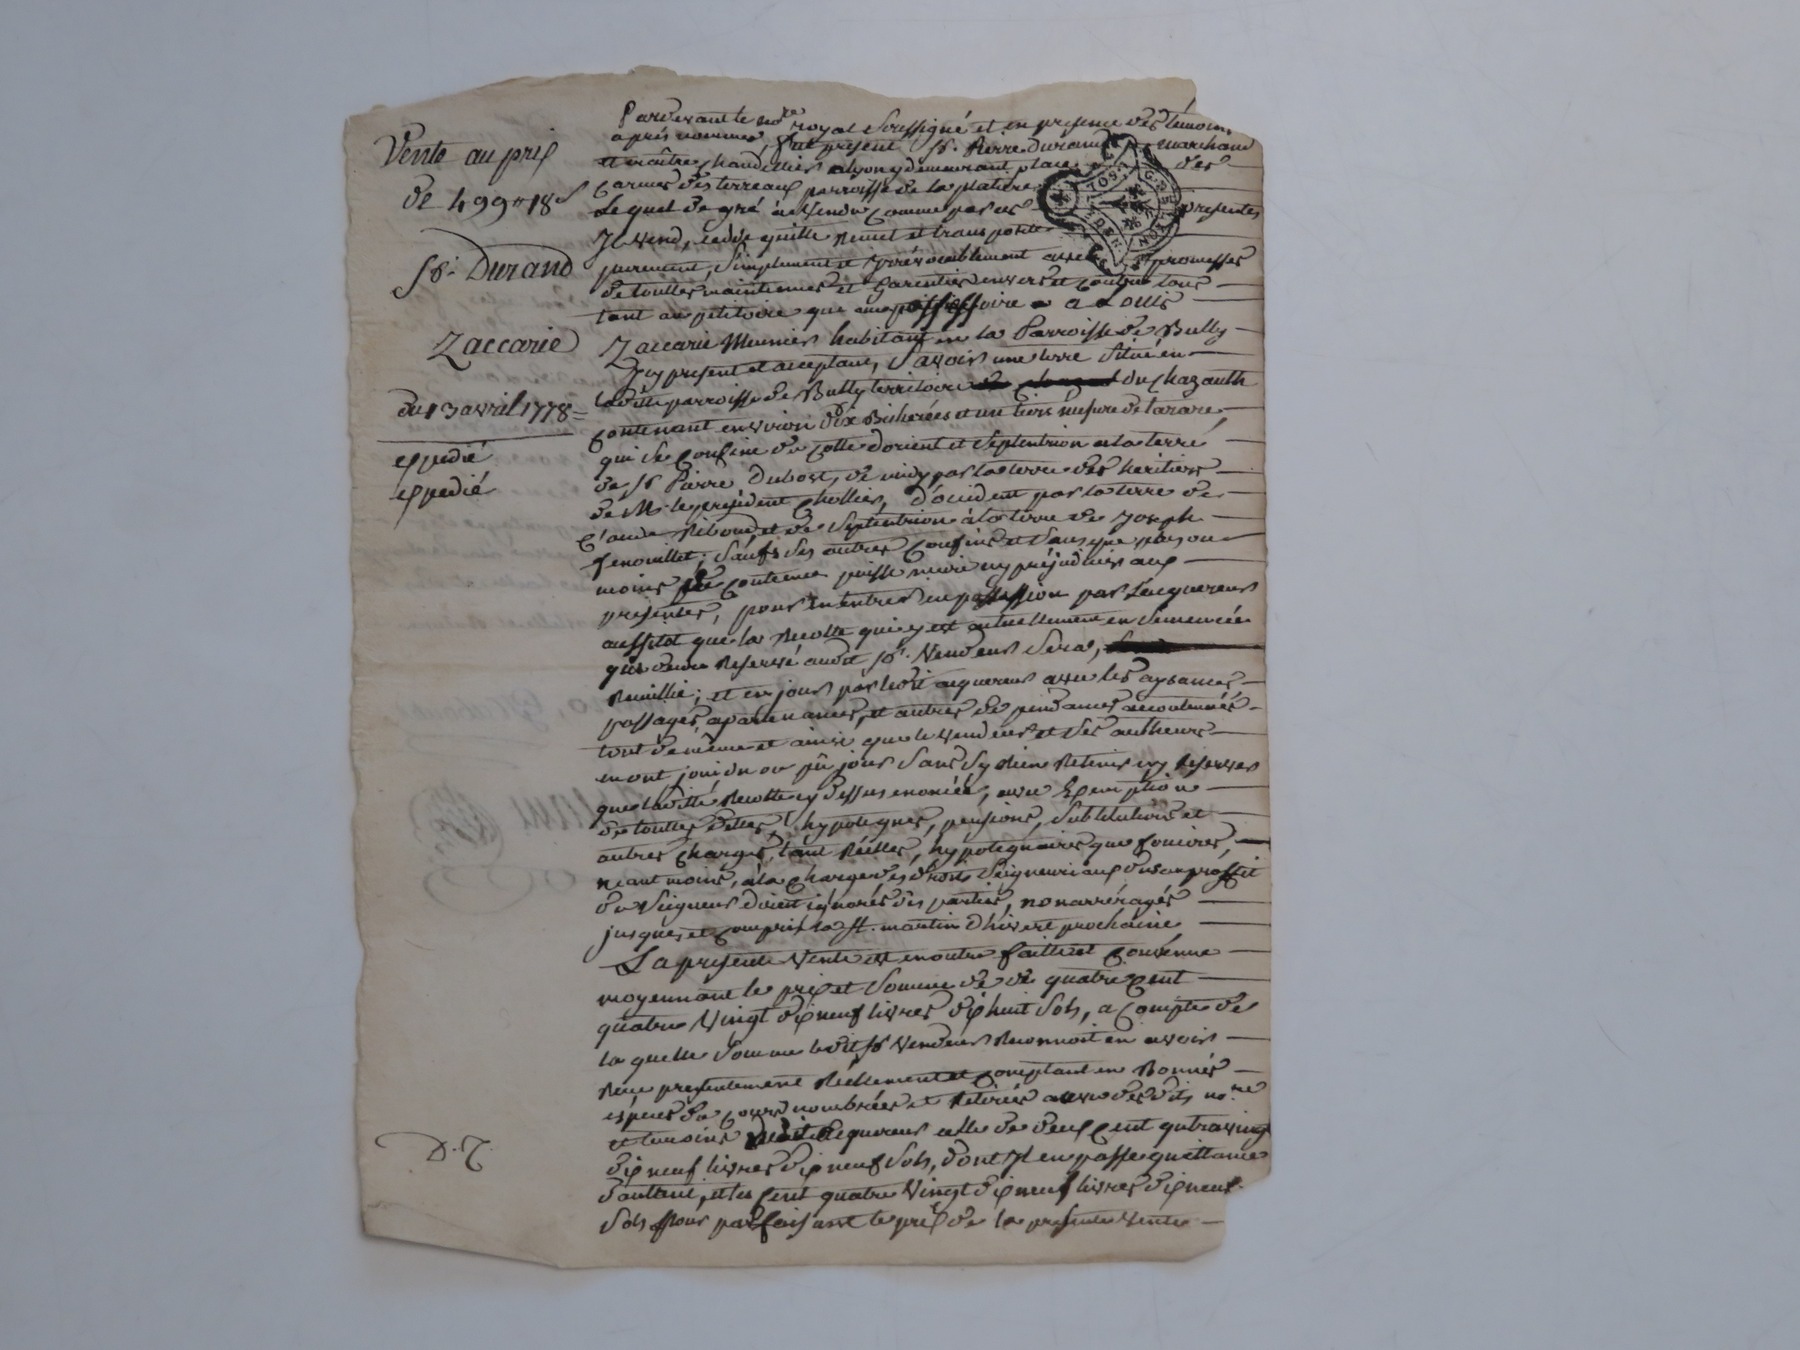 Vente au prix
de 499# 18s
Sr. Durand
Zaccarie
du 13 avril 1778
expedié
expedié
D.Z.
Pardevant le nore royal soussigné et en presence des temoins
après nommes, fut present Sr. Pierre Durand marchand
et maître chandellier a lyon y demeurant place des
Carmes des terreaux parroisse de la platiere
Lequel de gré à vendu comme par ces presentes
Il vend, cedde quitte remet et transporte
purement, simplement et irrévocablement avec promesses
de touttes maintenues et garenties envers et contre tous
tant au petitoire que au possessoire a Louis
Zaccarie Meunier habitant en la Parroisse de Bully
icy present et acceptant, Savoir une terre Située en
laditte parroisse de Bully territoire du Chazault
contenant environ dix Bicherées et un tiers mesure de tarare,
qui se confine du cotté d'orient et Septentrion a la terre
de Sr. Pierre Dubost, de midy par la terre des heritiers
de Mr. le president Chollier, d'occident par la terre de
Claude Riboud, et de Septentrion à la terre de Joseph
fenouillet; Saufs ses autres confins et Sans que plus ou
moins de contenue puisse nuire ny préjudicier aux
presentes, pour en entrer en possession par Lacquereur
aussitot que la recolte qui y est actuellement en Semencée
qui demeure reservé audit Sr. Vendeur Sera,
recuillie; et en jouir par ledit acquereur avec les aysances
passages apartenances, et autres dependances accoutumées
tout de même et ainsi que le vendeur et Ses autheurs
en ont joui, du ou pû jouir Sans Sy rien retenir ny reserver
que laditte recolte cy dessus enoncée, avec Exemption
de touttes dettes, hypoteques, pensions, Substitutions et
autres charges, tant réelles, hypotequaires que foncieres,
neantmoins, à la charge des droits Seigneuriaux dus au proffit
du Seigneur direct ignorés des parties, non arréragés
jusques et compris la St. martin d'hivert prochaine
La presente Vente est en outre faitte et convenue
moyennant le prix et Somme de de quatre Cent
quatre Vingt dix neuf livres dix huit Sols, a compte de
la quelle Somme ledit Sr Vendeur reconnoit en avoir
Reçu presentement réellement et comptant en Bonnes
espèces de cours nombrées et retirées a vue des dits nore
et temoins dudit acquereur celle de deux Cent
dix neuf livres dix neuf Sols, dont Il en passe quittance
d'autant, et les Cent quatre Vingt dix neuf livres dix neuf
Sols pour parfaisant le prix de la presente Vente